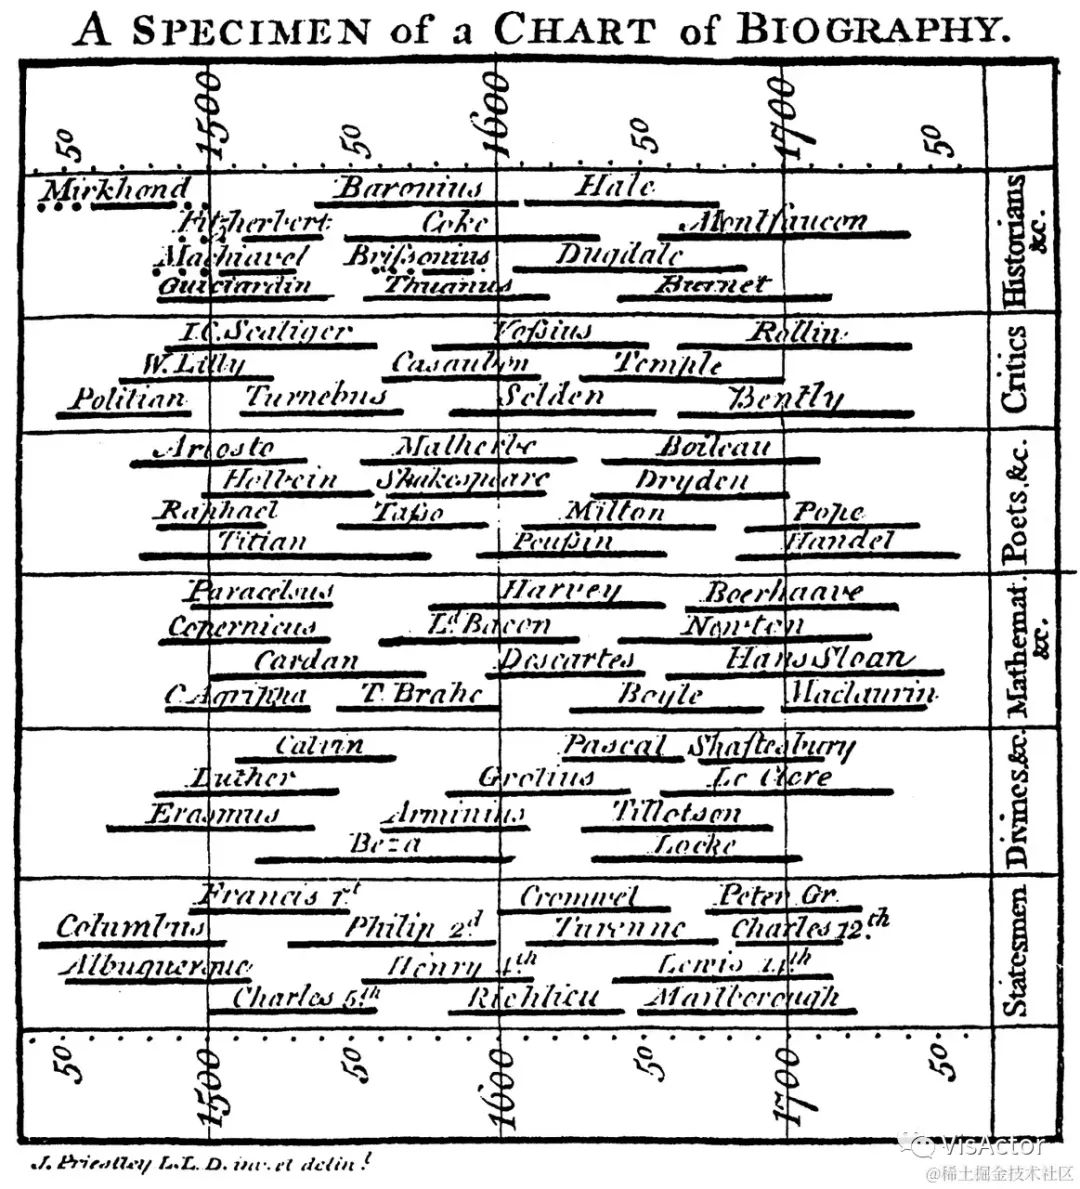 A SPECIMEN of a CHART of BIOGRAPHY.
50 1500 50 1600 50 1700 50
Mirkhond Baronius Hale
Fitzherbert Coke Montfaucon
Machiavel Brissonius Dugdale
Guiciardin Thuanus Burnet
Historians &c.
I.C. Scaliger Vossius Rollin
W. Lilly Casaubon Temple
Politian Turnebus Selden Bently
Critics
Ariosto Malherbe Boileau
Holbein Shakespeare Dryden
Raphael Tasso Milton Pope
Titian Poussin Handel
Poets, &c.
Paracelsus Harvey Boerhaave
Copernicus Ld. Bacon Newton
Cardan Descartes Hans Sloan
C. Agrippa T. Brahe Boyle Maclaurin
Mathemat. &c.
Calvin Pascal Shaftesbury
Luther Grotius Le Clere
Erasmus Arminius Tillotson
Beza Locke
Divines &c.
Francis 1st Cromwel Peter Gr.
Columbus Philip 2d. Turenne Charles 12.th
Albuquerque Henry 4.th Lewis 14th
Charles 5.th Richlieu Marlborough
Statesmen
50 1500 50 1600 50 1700 50
J. Priestley L.L.D. inv. et delin.t
VisActor
@稀土掘金技术社区